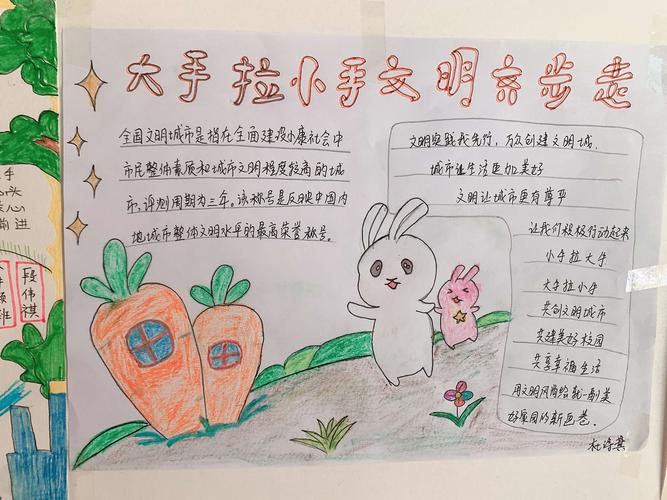 大手拉小手文明齐步走
全国文明城市是指在全面建设小康社会中
市民整体素质和城市文明程度较高的城
市,评测周期为三年。该称号是反映中国内
地城市整体文明水平的最高荣誉称号。
文明实践我先行,万众创建文明城.
城市让生活更加美好
文明让城市更有尊严
让我们积极行动起来
小手拉大手
大手拉小手
共创文明城市
共建美好校园
共享幸福生活
用文明风尚绘就一副美
好家园的新画卷.
手
心
前进
段伟祺
班